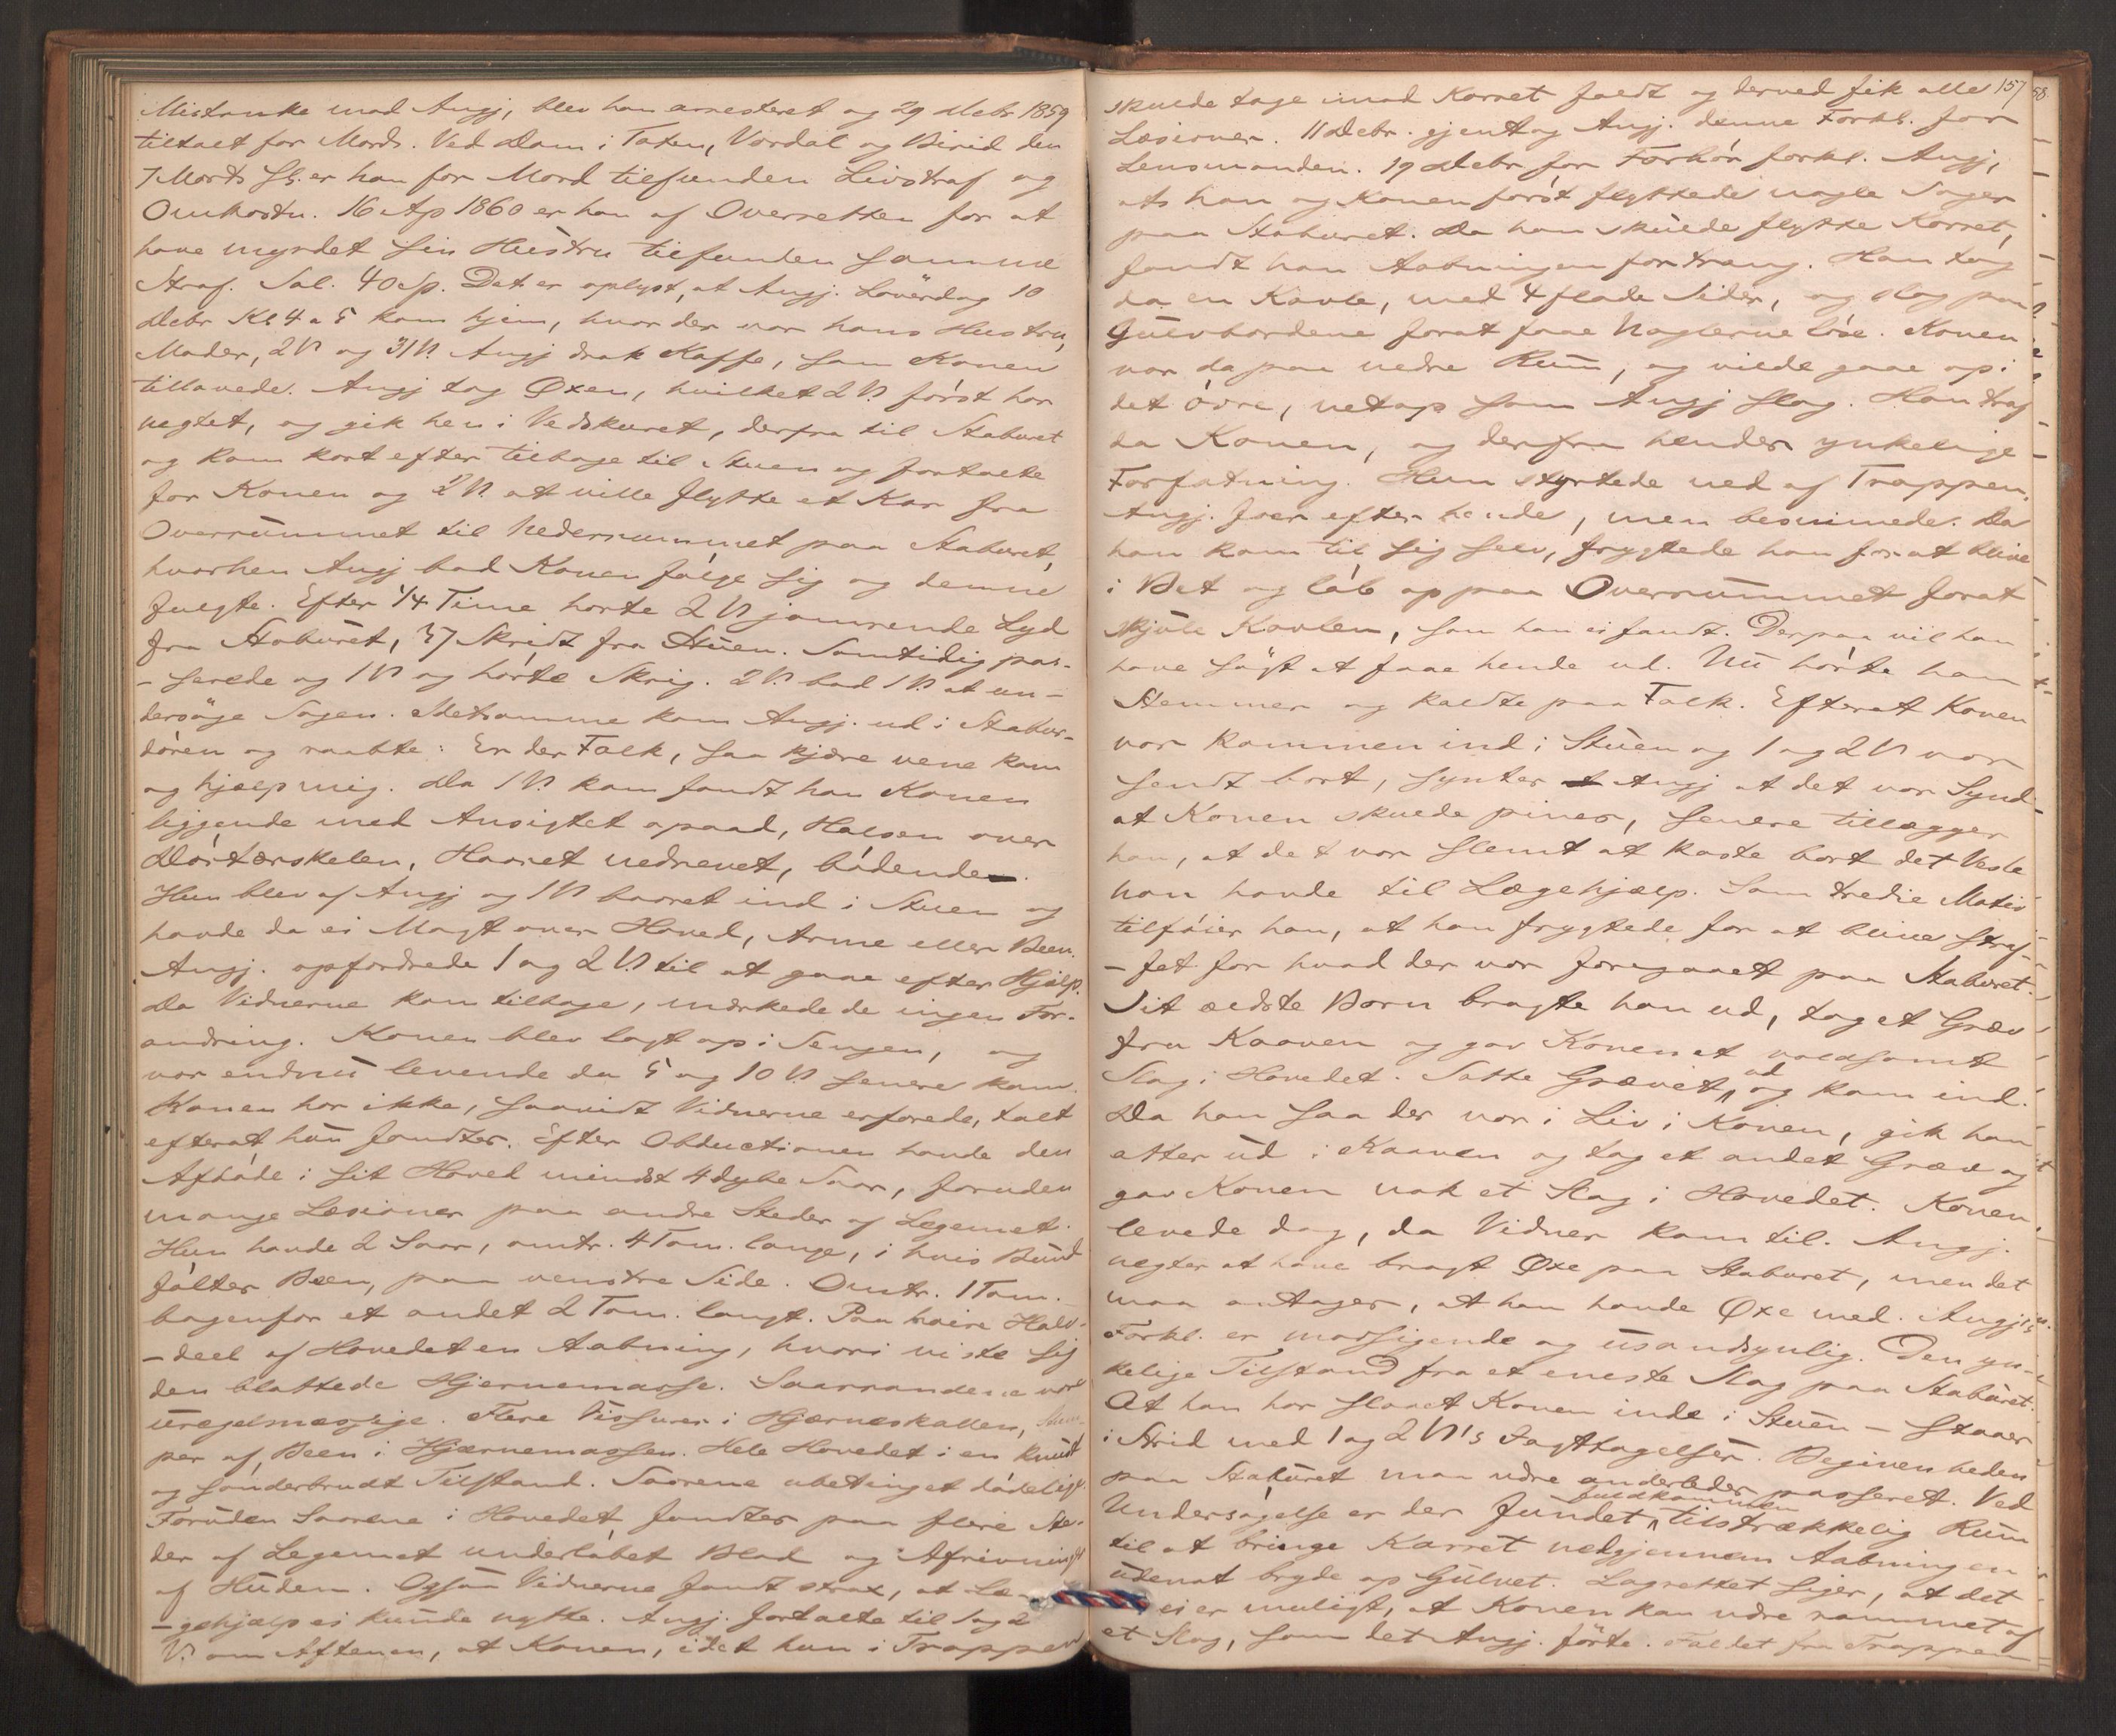 Mistanke mod Angj, blev han arresteret og 29 Debr 1859
tiltalt for Mord. Ved Dom i Toten, Vardal og Birid den
7 Marts ds. er han for Mord tilfunden Livstraf og
Omkostn. 16 Ap 1860 er han af Overretten for at
have myrdet sin Hustru tilfunden samme
Straf. Sal. 40 Sp. Det er oplyst, at Angj. Löverdag 10
Debr Kl 4 a 5 kom hjem, hvor der var hans Hustru,
Moder, 2 V. og 31 V. Angj drak Kaffe, som Konen
tillavede. Angj tog Øxen, hvilket 2 V. först har
negtet, og gik hen i Vedskuret, derfra til Staburet
og kom kort efter tilbage til Stuen og fortalte
for Konen og 2 V. at ville flytte et Kar fra
Overrummet til Nederrummet paa Staburet,
hvorhen Angj bad Konen fölge sig og denne
fulgte. Efter 1/4 Time horte 2 V jamrende Lyd
fra Staburet, 37 Skridt fra Stuen. Samtidig pas-
-serede og 1 V og hörte Skrig. 2 V. bad 1 V. at un-
dersöge Sagen. Detsamme kom Angj. ud i Stabur-
dören og raabte: Er der Folk, saa kjære vene kom
og hjælp mig. Da 1 V. kom fandt han Konen
liggende med Ansigtet opaad, Halsen over
Dörtærskelen, Haaret nedrevet, blödende.
Hun blev af Angj og 1 V baaret ind i Stuen og
havde da ei Magt over Hoved, Arme eller Been.
Angj. opfordrede 1 og 2 V. til at gaae efter Hjælp.
Da Vidnerne kom tilbage, mærkede de ingen For-
andring. Konen blev lagt op i Sengen, og
var endnu levende da 5 og 10 V. senere kom.
Konen har ikke, saavidt Vidnerne erfarede, talt
efterat hun fandtes. Efter Obductionen havde den
Afdöde i sit Hoved mindst 4 dybe Saar, foruden
mange Læsioner paa andre Steder af Legemet.
Hun havde 2 Saar, omtr. 4 Tom. lange, i hvis Bund
fóltes Been, paa venstre Side. Omtr. 1 Tom.
bagenfor et andet 2 Tom. langt. Paa höire Halv-
-deel af Hovedet en Aabning, hvori viste sig
den blottede Hjernemasse. Saarrandene vare
uregelmæssige. Flere Fissurer i Hjærneskallen,
per af Been i Hjærnemassen. Hele Hovedet i en knust
og sönderbrudt Tilstand. Saarene ubetinget dödelige.
Foruden Saarene i Hovedet fandtes paa flere Ste-
der af Legemet underlöbet Blod og Afrivning
af Huden. Ogsaa Vidnerne fandt strax, at Læ-
-gehjælp ei kunde nytte. Angj. fortalte til 1 og 2
V. om Aftenen, at Konen, idet hun i Trappen
157
58
skulde tage imod Karret faldt og derved fik alle
Læsioner. 11 Debr. gjentog Angj. denne Forkl. for
Lensmanden. 19 Debr for Forhör forkl. Angj,
at han og Konen först flyttede nogle Sager
paa Staburet. Da han skulde flytte Karret,
fandt han Aabningen for trang. Han tog
da en Kavle, med 4 flade Sider, og slog paa
Gulvbordene forat faae Naglerne löse. Konen
var da paa nedre Rum, og vilde gaae op i
det övre, netop som Angj slog. Han traf
da Konen, og derfra hendes ynkelige
Forfatning. Hun styrtede ned af Trappen.
Angj. foer efter hende, men besvimede. Da
han kom til sig selv, frygtede han for at blive
i Bet og löb op paa Overrummet forat
skjule Kavlen, som han ei fandt. Derpaa vil han
have sögt at faae hende ud. Nu hörte han
Stemmer og kaldte paa Folk. Efterat Konen
var kommen ind i Stuen og 1 og 2 V var
sendt bort, syntes Angj at det var Synd
at Konen skulde pines, senere tillægger
han, at det var slemt at kaste bort det Vesle
han havde til Lægehjælp. Som tredie Motiv
tilföier han, at han frygtede for at blive straf-
-fet for hvad der var foregaaet paa Staburet.
Sit ældste Barn bragte han ud, tog et Græv
fra Kaaven og gav Konen et voldsomt
Slag i Hovedet. Satte Grævet ud og kom ind.
Da han saa der var i Liv i Konen, gik han
atter ud i Kaaven og tog et andet Græv og
gav Konen nok et Slag i Hovedet. Konen
levede dog, da Vidner kom til. Angj.
negter at have bragt Øxe paa Staburet, men det
maa antages, at han havde Øxe med. Angj's
Forkl. er modsigende og usandsynlig. Den yn-
kelige Tilstand fra et eneste Slag paa Staburet.
At han har slaaet Konen inde i Stuen – staaer
i Strid med 1 og 2 V's Iagttagelser. Begivenheden
paa Staburet maa være anderledes passeret. Ved
Undersögelse er der fundet fuldkommen tilstrækkelig Rum
til at bringe Karret nedgjennem Aabningen
udenat bryde op Gulvet. Lagrettet siger, at det
ei er muligt, at Konen kan være rammet af
et Slag, som det Angj. förte. Faldet fra Trappen